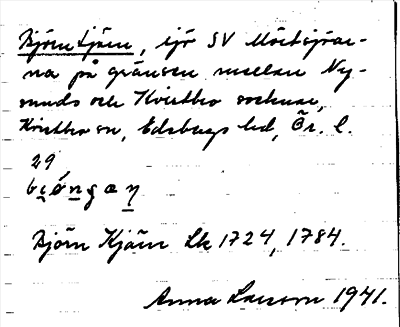 Björntjärn, tjr SV Mörtsjöar-
na på gränsen mellan Ny-
sunds och Kvistbro socknar,
Kvistbro sn, Edsbergs hd, Ör. l.
29
Björn Kjärn Lk 1724, 1784.
Anna Larsson 1941.